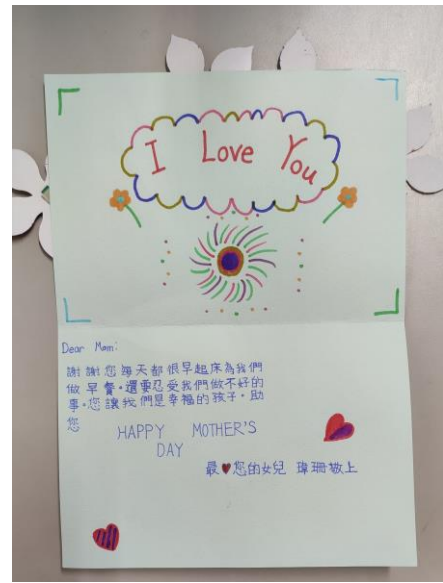 I Love You
Dear Mom:
謝謝您每天都很早起床為我們
做早餐,還要忍受我們做不好的
事,您讓我們是幸福的孩子。助
您
HAPPY MOTHER'S
DAY
最♥您的女兒 瑋珊敬上